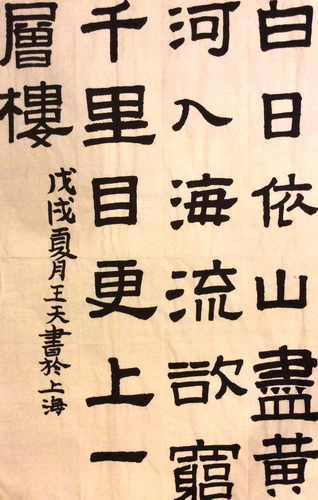 白日依山盡黄
河入海流欲窮
千里目更上一
層樓
戊戌夏月王天書於上海